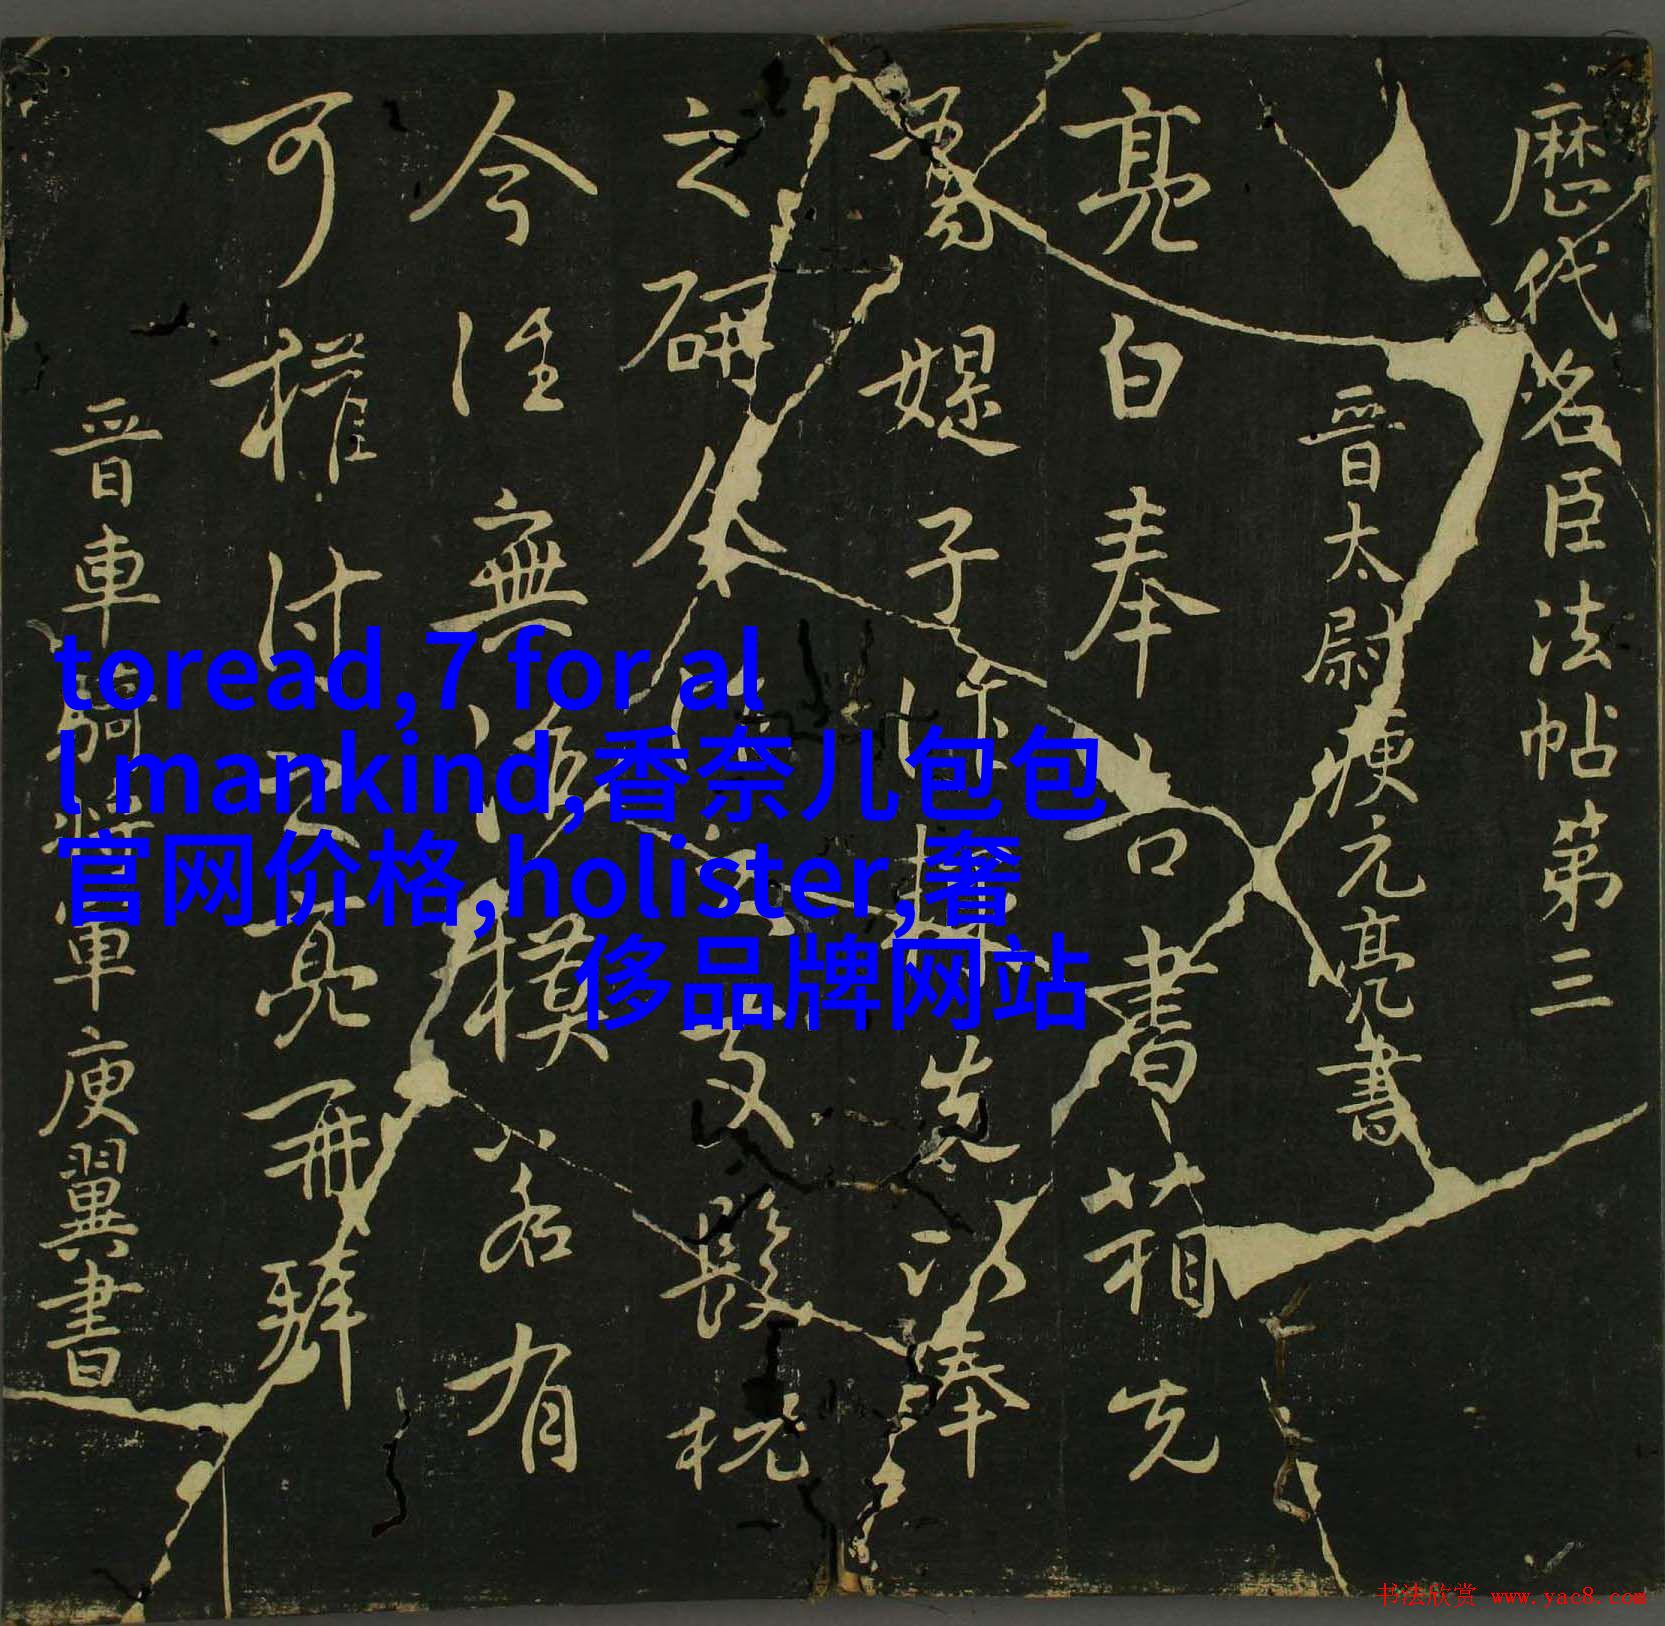 厯代名臣法帖第三
晉太尉庾元亮書
亮白奉告書箱先
子先奉
之研
今往無模若有
可權付亮再拜
晉車騎將軍庾翼書
toread,7 for al
l mankind,香奈儿包包
官网价格,holister,奢
侈品牌网站
书法欣赏 www.yac8.com